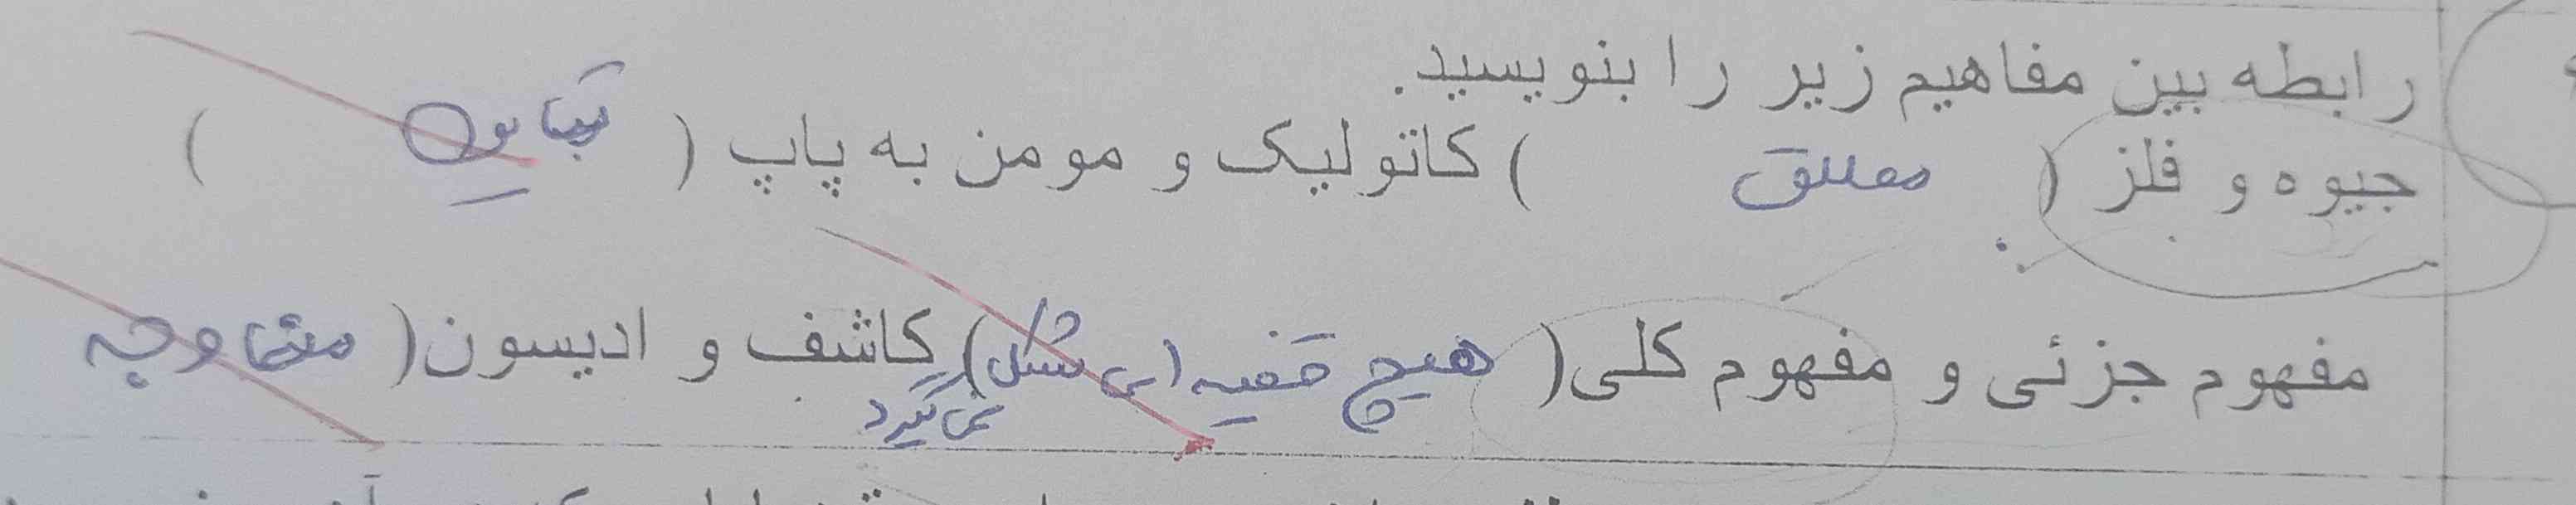 رابطه بین مفاهیم زیر را بنویسید.
جیوه و فلز ( مطلق ) کاتولیک و مومن به پاپ ( تباین )
مفهوم جزئی و مفهوم کلی( هیچ قضیه ای شکل ) کاشف و ادیسون(
نمی گیرد